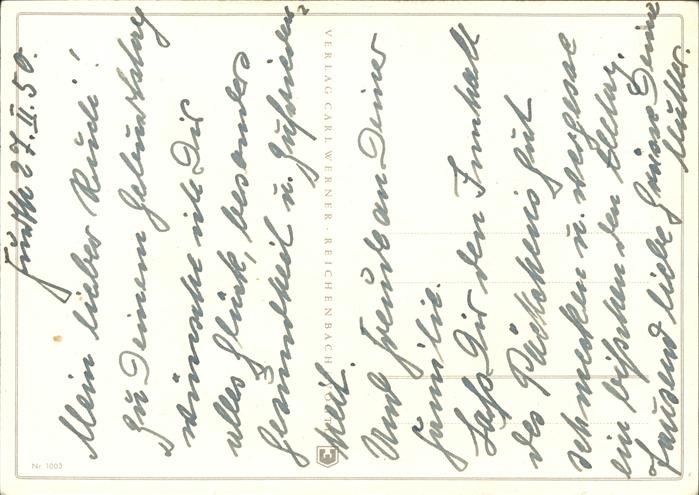 Fürth 27.II.50.
Mein lieber Rudi!
Zu Deinem Geburtstag
wünsche ich Dir
alles Glück, besonders
Gesundheit u. Zufrieden-
heit.
Und Freude an Deiner
Familie.
Laß Dir den Innhalt
des Päckchens gut
schmecken u. vergesse
ein bißchen den Alltag.
Tausend liebe Grüße Deine
Mutter.
VERLAG CARL WERNER · REICHENBACH
Nr. 1003